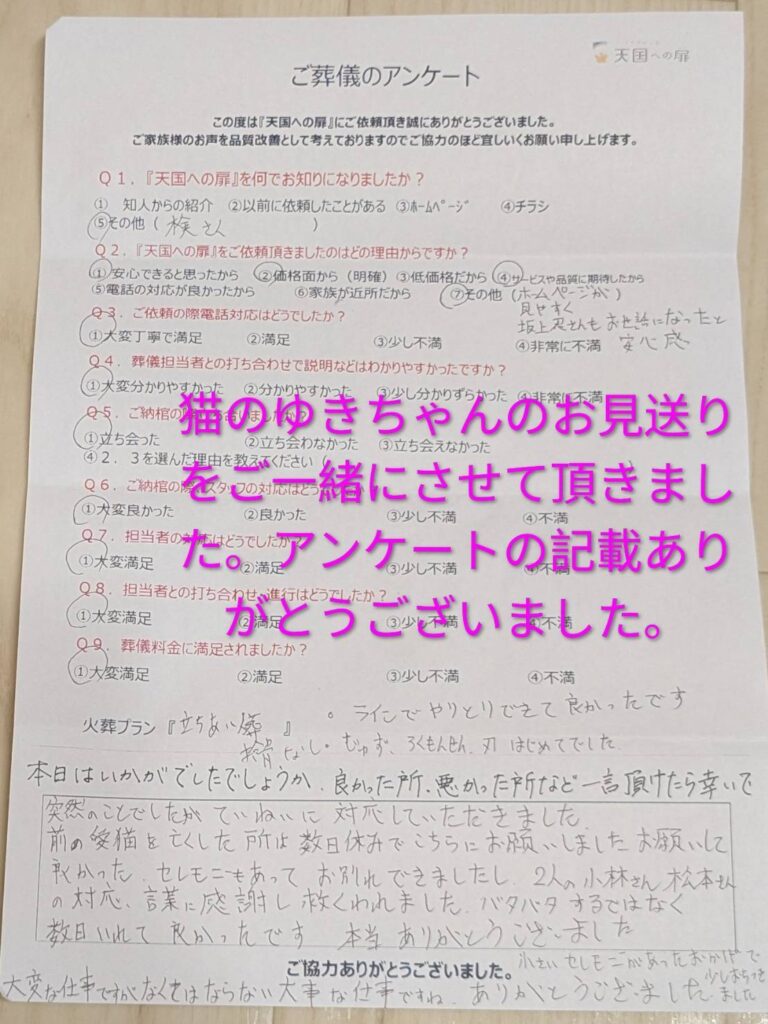 天国への扉
ご葬儀のアンケート
この度は『天国への扉』にご依頼頂き誠にありがとうございました。
ご家族様のお声を品質改善として考えておりますのでご協力のほど宜しいくお願い申し上げます。
Q1.『天国への扉』を何でお知りになりましたか?
① 知人からの紹介 ②以前に依頼したことがある ③ホームページ ④チラシ
⑤その他(検さく )
Q2.『天国への扉』をご依頼頂きましたのはどの理由からですか?
①安心できると思ったから ②価格面から(明確)③低価格だから ④サービスや品質に期待したから
⑤電話の対応が良かったから ⑥家族が近所だから ⑦その他(ホームページが)
見やすく
坂上忍さんもお世話になったと
安心感
Q3.ご依頼の際電話対応はどうでしたか?
①大変丁寧で満足 ②満足 ③少し不満 ④非常に不満
Q4.葬儀担当者との打ち合わせで説明などはわかりやすかったですか?
①大変分かりやすかった ②分かりやすかった ③少し分かりずらかった ④非常に不満
猫のゆきちゃんのお見送り
をご一緒にさせて頂きまし
た。アンケートの記載あり
がとうございました。
Q5.ご納棺の
①立ち会った ②立ち会わなかった ③立ち会えなかった
④2.3を選んだ理由を教えてください(
Q6.ご納棺の際 スタッフの対応は
①大変良かった ②良かった ③少し不満 ④不満
Q7.担当者の対応はどうでしたか?
①大変満足 ②満足 ③少し不満 ④不満
Q8.担当者との打ち合わせ、進行はどうでしたか?
①大変満足 ②満足 ③少し不満 ④不満
Q9.葬儀料金に満足されましたか?
①大変満足 ②満足 ③少し不満 ④不満
火葬プラン『立ちあい葬 』 。ラインでやりとりできて良かったです
拾骨なし。じゅず、ろくもんせん、刃 はじめてでした
本日はいかがでしたでしょうか、良かった所、悪かった所など一言頂けたら幸いで
突然のことでしたがていねいに対応していただきました
前の愛猫を亡くした所は数日休みでこちらにお願いしましたお願いして
良かった、セレモニもあってお別れできましたし、2人の小林さん松本さん
の対応、言葉に感謝し救くわれました、バタバタするではなく
数日いれて良かったです 本当ありがとうございました
小さいセレモニがあったおかげで
少しおちつきました
ご協力ありがとうございました。
大変な仕事ですがなくてはならない大事な仕事ですね、ありがとうございました